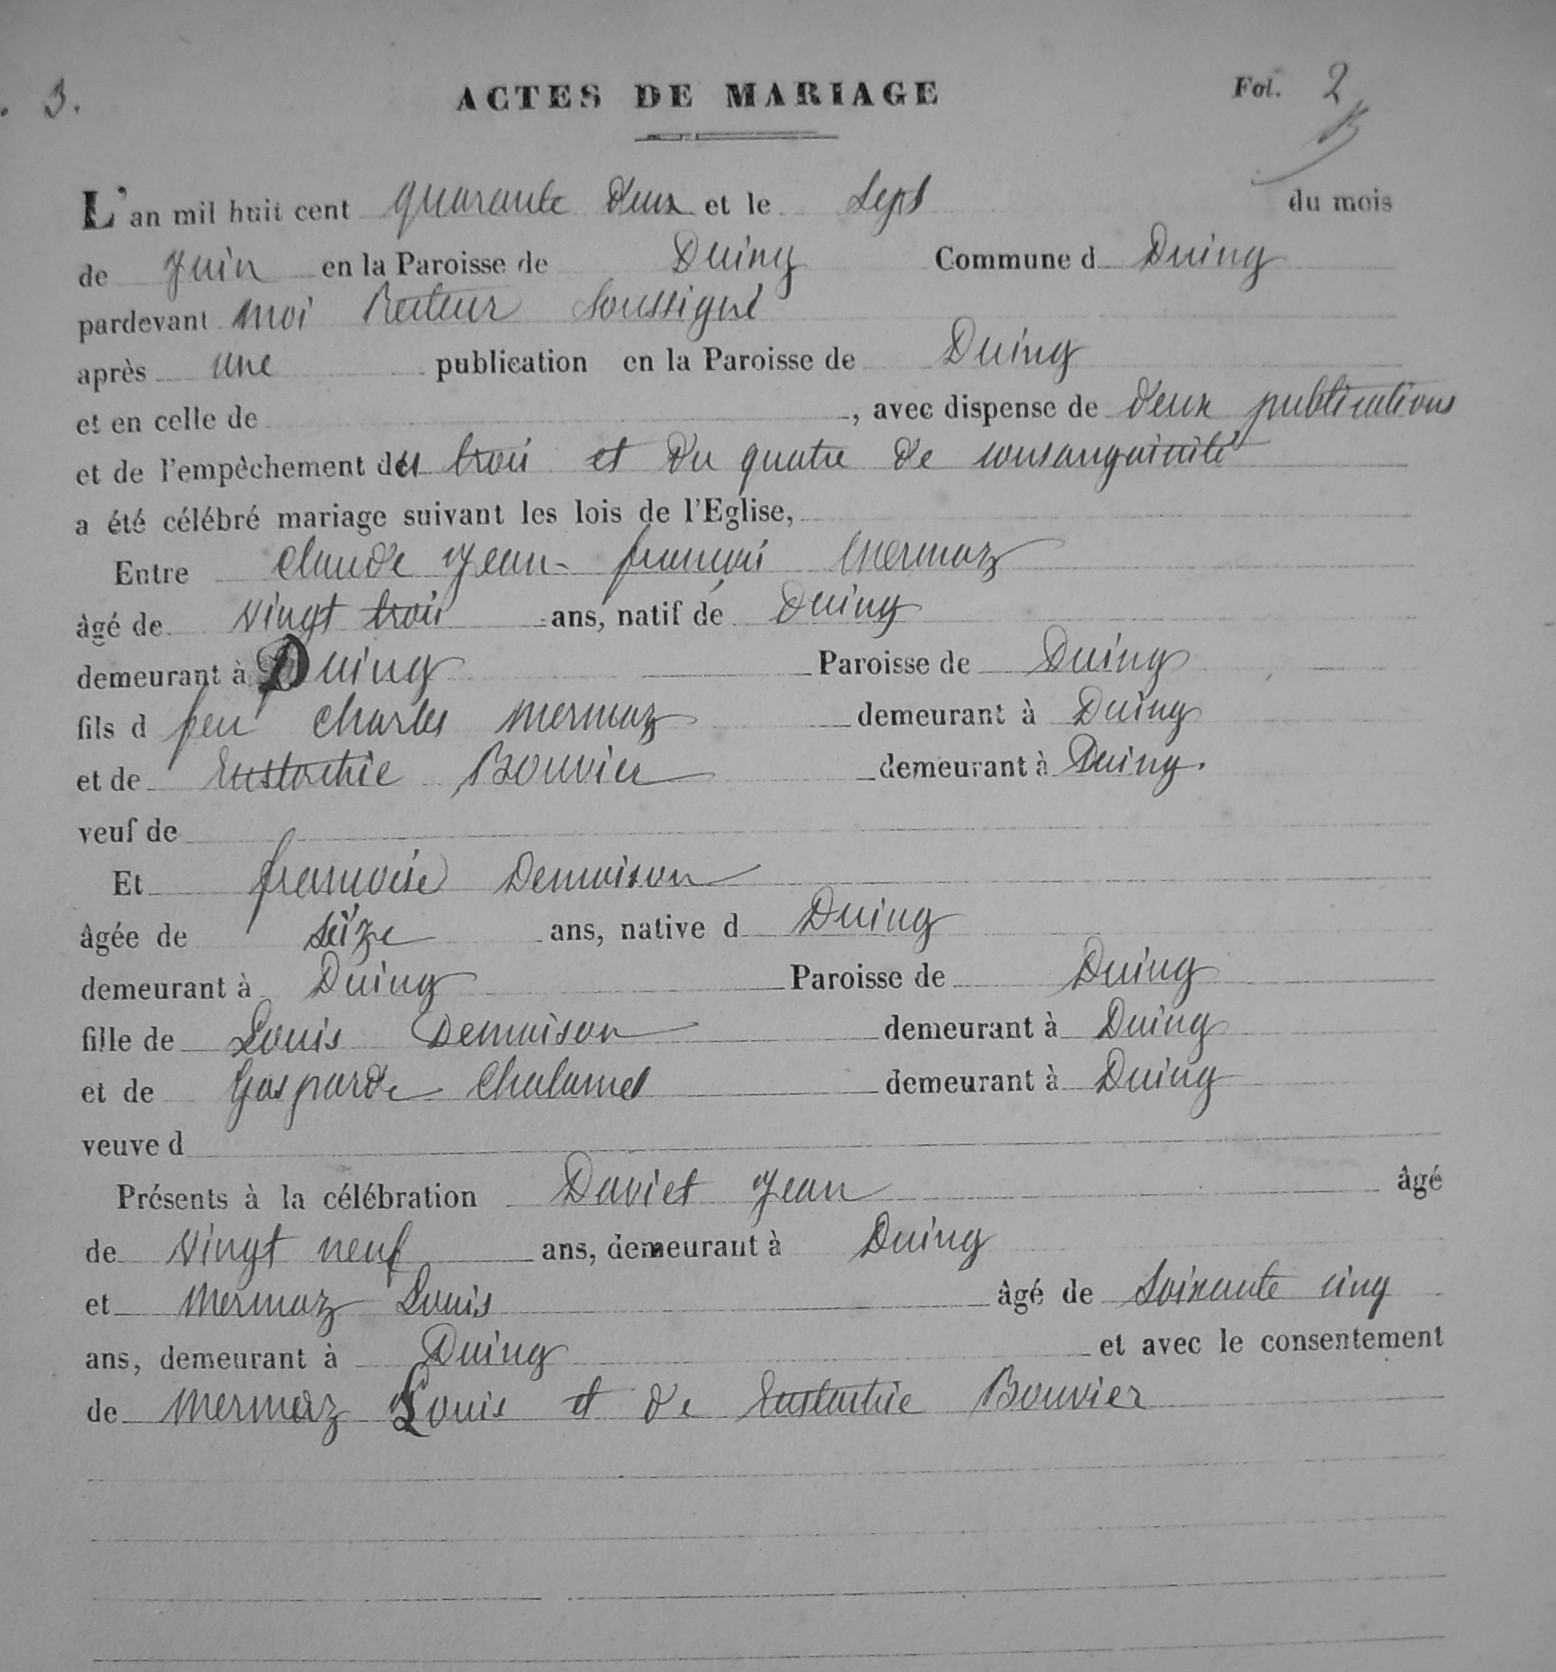 3. ACTES DE MARIAGE Fol. 2
L'an mil huit cent quarante deux et le sept du mois
de juin en la Paroisse de Duing Commune d Duing
pardevant moi Recteur soussigné
après une publication en la Paroisse de Duing
et en celle de , avec dispense de deux publications
et de l'empêchement du trois et du quatre de consanguinité
a été célébré mariage suivant les lois de l'Eglise,
Entre Claude Jean-françois Mermaz
âgé de vingt trois ans, natif de Duing
demeurant à Duing Paroisse de Duing
fils d feu Charles Mermaz demeurant à Duing
et de Eustachie Bouvier demeurant à Duing.
veuf de
Et françoise Demaison
âgée de seize ans, native d Duing
demeurant à Duing Paroisse de Duing
fille de Louis Demaison demeurant à Duing
et de Gasparde Chalamel demeurant à Duing
veuve d
Présents à la célébration Daviet Jean âgé
de vingt neuf ans, demeurant à Duing
et Mermaz Louis âgé de soixante cinq
ans, demeurant à Duing et avec le consentement
de Mermaz Louis et de Eustachie Bouvier